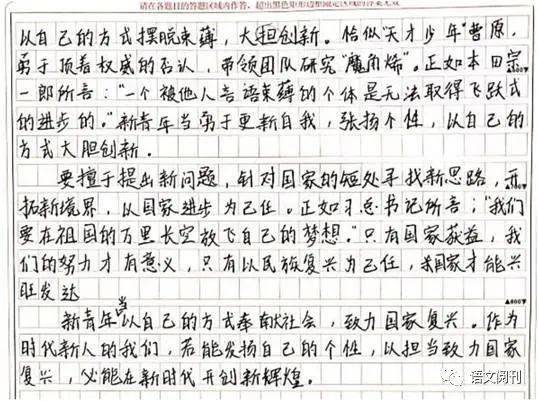 请在各题目的答题区域内作答，超出黑色矩形边框限定区域的答案无效
以自己的方式摆脱束薄，大担创新。恰似“天才少年”曹原，
勇于顶着权威的否认，带领团队研究“魔角烯”。正如本田宗
一郎所言：“一个被他人言语束薄的个体是无法取得飞跃式
的进步的。”新青年当勇于更新自我，张扬个性，以自己的
方式大胆创新。
要擅于提出新问题，针对国家的短处寻找新思路，开
拓新境界，以国家进步为己任。正如习总书记所言：“我们
要在祖国的万里长空放飞自己的梦想。”只有国家获益，我
们的努力才有意义，只有以民族复兴为己任，国家才能兴
旺发达
新青年当以自己的方式奉献社会，致力国家复兴。作为
时代新人的我们，若能发扬自己的个性，以担当致力国家
复兴，必能在新时代开创新辉煌。
▲600▼
▲800▼
语文阅刊